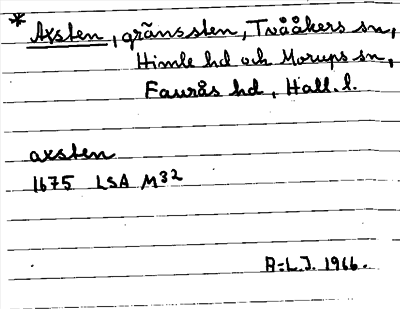 * Axsten, gränssten, Tvååkers sn,
Himle hd och Morups sn,
Faurås hd, Hall. l.
axsten
1675 LSA M32
B-L.J. 1966.